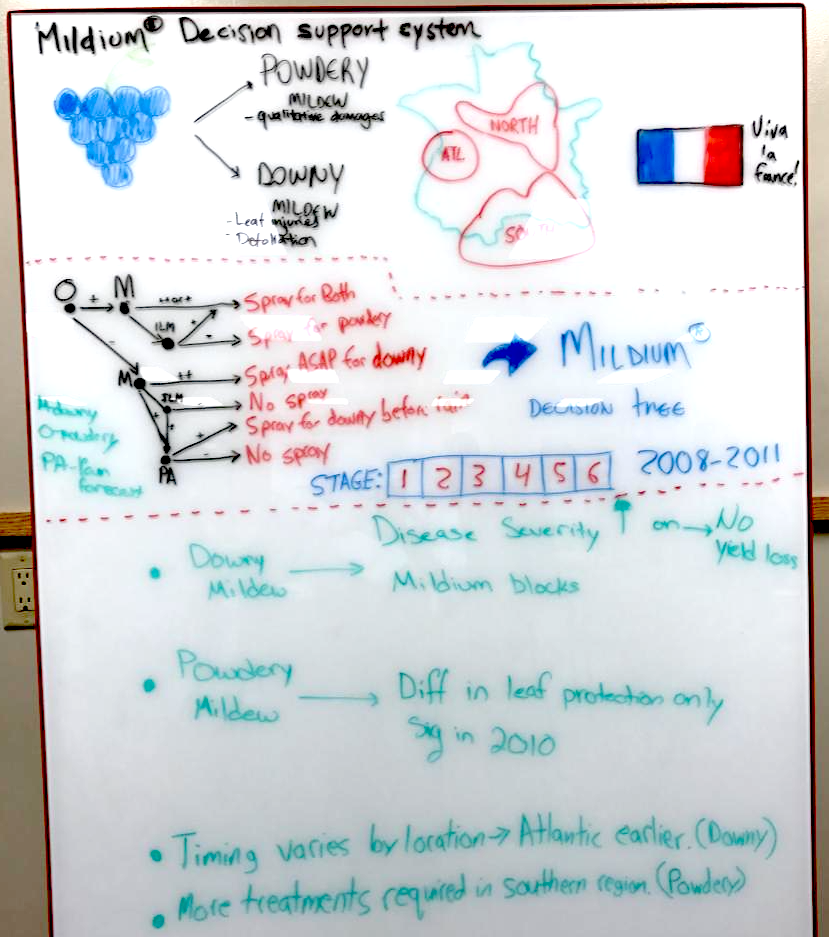 Mildium® Decision support system
POWDERY
MILDEW
- qualitative damages
DOWNY
MILDEW
- Leaf injuries
- Defoliation
NORTH
ATL.
SOUTH
Viva
la
france!
O + M ++or+ Spray for Both
ILM + - Spray for powdery
- M ++ Spray ASAP for downy
ILM - No spray
+ + Spray for downy before rain
PA - No spray
M-downy
O-powdery
PA-Rain
forecast
MILDIUM®
DECISION tREE
STAGE: 1 2 3 4 5 6
2008-2011
• Downy
Mildew → Disease Severity ↑ on → No
yield loss
Mildium blocks
• Powdery
Mildew → Diff in leaf protection only
sig in 2010
• Timing varies by location → Atlantic earlier. (Downy)
• More treatments required in southern region. (Powdery)